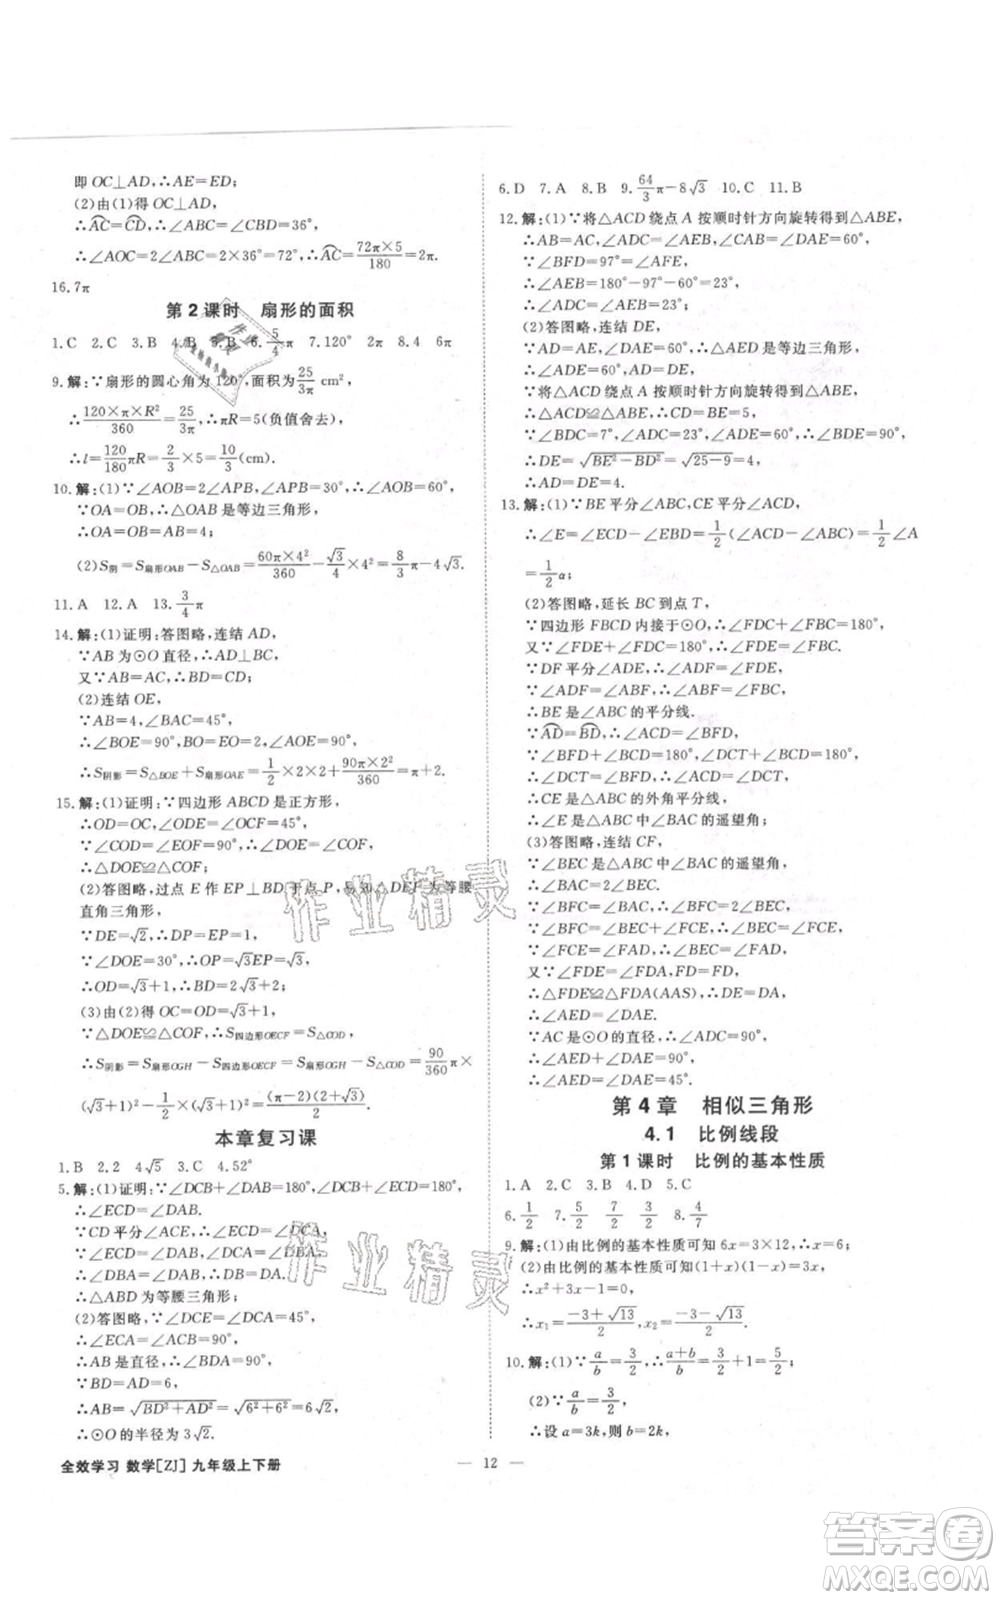 即 OC⊥AD,∴AE=ED;
(2)由(1)得 OC⊥AD,
∴AC=CD,∴∠ABC=∠CBD=36°,
∴∠AOC=2∠ABC=2×36°=72°,∴AC=72π×5/180=2π.
16.7π
第 2 课时 扇形的面积
1.C 2.C 3.B 4.B 5.B 6.5/4π 7.120° 2π 8.4 6π
9.解:∵扇形的圆心角为 120°,面积为25/3π cm²,
∴120×π×R²/360=25/3π,∴πR=5(负值舍去),
∴l=120/180πR=2/3×5=10/3(cm).
10.解:(1)∵∠AOB=2∠APB,∠APB=30°,∴∠AOB=60°,
∵OA=OB,∴△OAB 是等边三角形,
∴OA=OB=AB=4;
(2)S阴=S扇形OAB−S△OAB=60π×4²/360−√3/4×4²=8/3π−4√3.
11.A 12.A 13.3/4π
14.解:(1)证明:答图略,连结 AD,
∵AB 为⊙O 直径,∴AD⊥BC,
又∵AB=AC,∴BD=CD;
(2)连结 OE,
∵AB=4,∠BAC=45°,
∴∠BOE=90°,BO=EO=2,∠AOE=90°,
∴S阴影=S△BOE+S扇形OAE=1/2×2×2+90π×2²/360=π+2.
15.解:(1)证明:∵四边形 ABCD 是正方形,
∴OD=OC,∠ODE=∠OCF=45°,
∵∠COD=∠EOF=90°,∴∠DOE=∠COF,
∴△DOE≌△COF;
(2)答图略,过点 E 作 EP⊥BD 于点 P,易知△DEP 为等腰
直角三角形,
∵DE=√2,∴DP=EP=1,
∵∠DOE=30°,∴OP=√3EP=√3,
∴OD=√3+1,∴OC=OD=√3+1;
(3)由(2)得 OC=OD=√3+1,
∵△DOE≌△COF,∴S四边形OECF=S△COD,
∴S阴影=S扇形OGH−S四边形OECF=S扇形OGH−S△COD=90/360π×
(√3+1)²−1/2×(√3+1)²=(π−2)(2+√3)/2.
本章复习课
1.B 2.2 4√5 3.C 4.52°
5.解:(1)证明:∵∠DCB+∠DAB=180°,∠DCB+∠ECD=180°,
∴∠ECD=∠DAB.
∵CD 平分∠ACE,∴∠ECD=∠DCA,
∴∠DBA=∠DAB,∵∠DCA=∠DBA,
∴△ABD 为等腰三角形;
(2)答图略,∵∠DCE=∠DCA=45°,
∴∠ECA=∠ACB=90°,
∴AB 是直径,∴∠BDA=90°,
∵BD=AD=6,
∴AB=√BD²+AD²=√6²+6²=6√2,
∴⊙O 的半径为 3√2.
6.D 7.A 8.B 9.64/3π−8√3 10.C 11.B
12.解:(1)∵将△ACD 绕点 A 按顺时针方向旋转得到△ABE,
∴AB=AC,∠ACD=∠AEB,∠CAB=∠DAE=60°,
∵∠BFD=97°=∠AFE,
∴∠AEB=180°−97°−60°=23°,
∴∠ADC=∠AEB=23°;
(2)答图略,连结 DE,
∵AD=AE,∠DAE=60°,
∴△AED 是等边三角形,
∴∠ADE=60°,AD=DE,
∵将△ACD 绕点 A 按顺时针方向旋转得到△ABE,
∴△ACD≌△ABE,∴CD=BE=5,
∵∠BDC=7°,∠ADC=23°,∠ADE=60°,
∴∠BDE=∠BDC+∠ADC+∠ADE=90°,
∴DE=√BE²−BD²=√25−9=4,
∴AD=DE=4.
13.解:(1)∵BE 平分∠ABC,CE 平分∠ACD,
∴∠E=∠ECD−∠EBD=1/2(∠ACD−∠ABC)=1/2∠A
=1/2α;
(2)答图略,延长 BC 到点 T,
∵四边形 FBCD 内接于⊙O,∴∠FDC+∠FBC=180°,
又∵∠FDE+∠FDC=180°,∴∠FDE=∠FBC,
∵DF 平分∠ADE,∴∠ADF=∠FDE,
∵∠ADF=∠ABF,∴∠ABF=∠FBC,
∴BE 是∠ABC 的平分线.
∵AD=BD,∴∠ACD=∠BFD,
∵∠BFD+∠BCD=180°,∠DCT+∠BCD=180°,
∴∠DCT=∠BFD,∴∠ACD=∠DCT,
∴CE 是△ABC 的外角平分线,
∴∠E 是△ABC 中∠BAC 的遥望角;
(3)答图略,连结 CF,
∵∠BEC 是△ABC 中∠BAC 的遥望角,
∴∠BAC=2∠BEC,
∵∠BFC=∠BAC,∴∠BFC=2∠BEC,
∵∠BFC=∠BEC+∠FCE,∴∠BEC=∠FCE,
∵∠FCE=∠FAD,∴∠BEC=∠FAD,
又∵∠FDE=∠FDA,FD=FD,
∴△FDE≌△FDA(AAS),∴DE=DA,
∴∠AED=∠DAE.
∵AC 是⊙O 的直径,∴∠ADC=90°,
∴∠AED+∠DAE=90°,
∴∠AED=∠DAE=45°.
第 4 章 相似三角形
4.1 比例线段
第 1 课时 比例的基本性质
1.A 2.C 3.B 4.D 5.C
6.1/2 7.5/2 1/2 3/2 8.4/7
9.解:(1)由比例的基本性质可知 6x=3×12,∴x=6;
(2)由比例的基本性质可知(1+x)(1−x)=3x,
∴x²+3x−1=0,
∴x₁=−3+√13/2,x₂=−3−√13/2.
10.解:(1)∵a/b=3/2,∴a+b/b=3/2+1=5/2;
(2)∵a/b=3/2,
∴设 a=3k,则 b=2k,
全效学习 数学[ZJ] 九年级上下册
12
作业精灵
作业精灵
答案卷